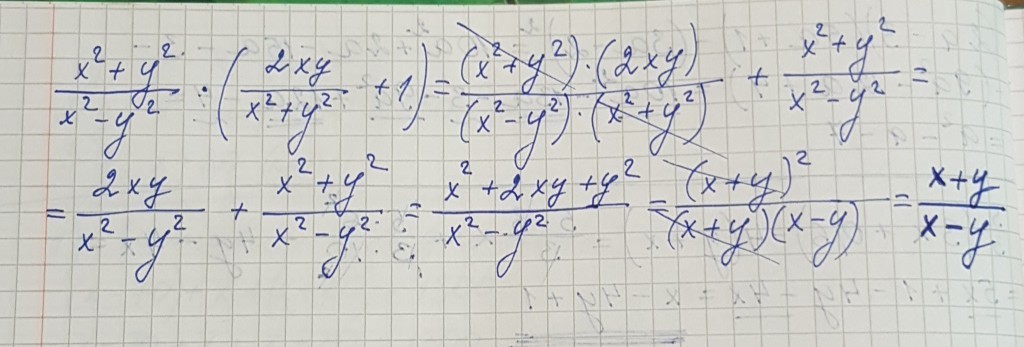 (x² + y²)/(x² - y²) · (2xy/(x² + y²) + 1) = ((x² + y²) · (2xy))/((x² - y²) · (x² + y²)) + (x² + y²)/(x² - y²) =
= 2xy/(x² - y²) + (x² + y²)/(x² - y²) = (x² + 2xy + y²)/(x² - y²) = (x + y)²/((x + y)(x - y)) = (x + y)/(x - y)